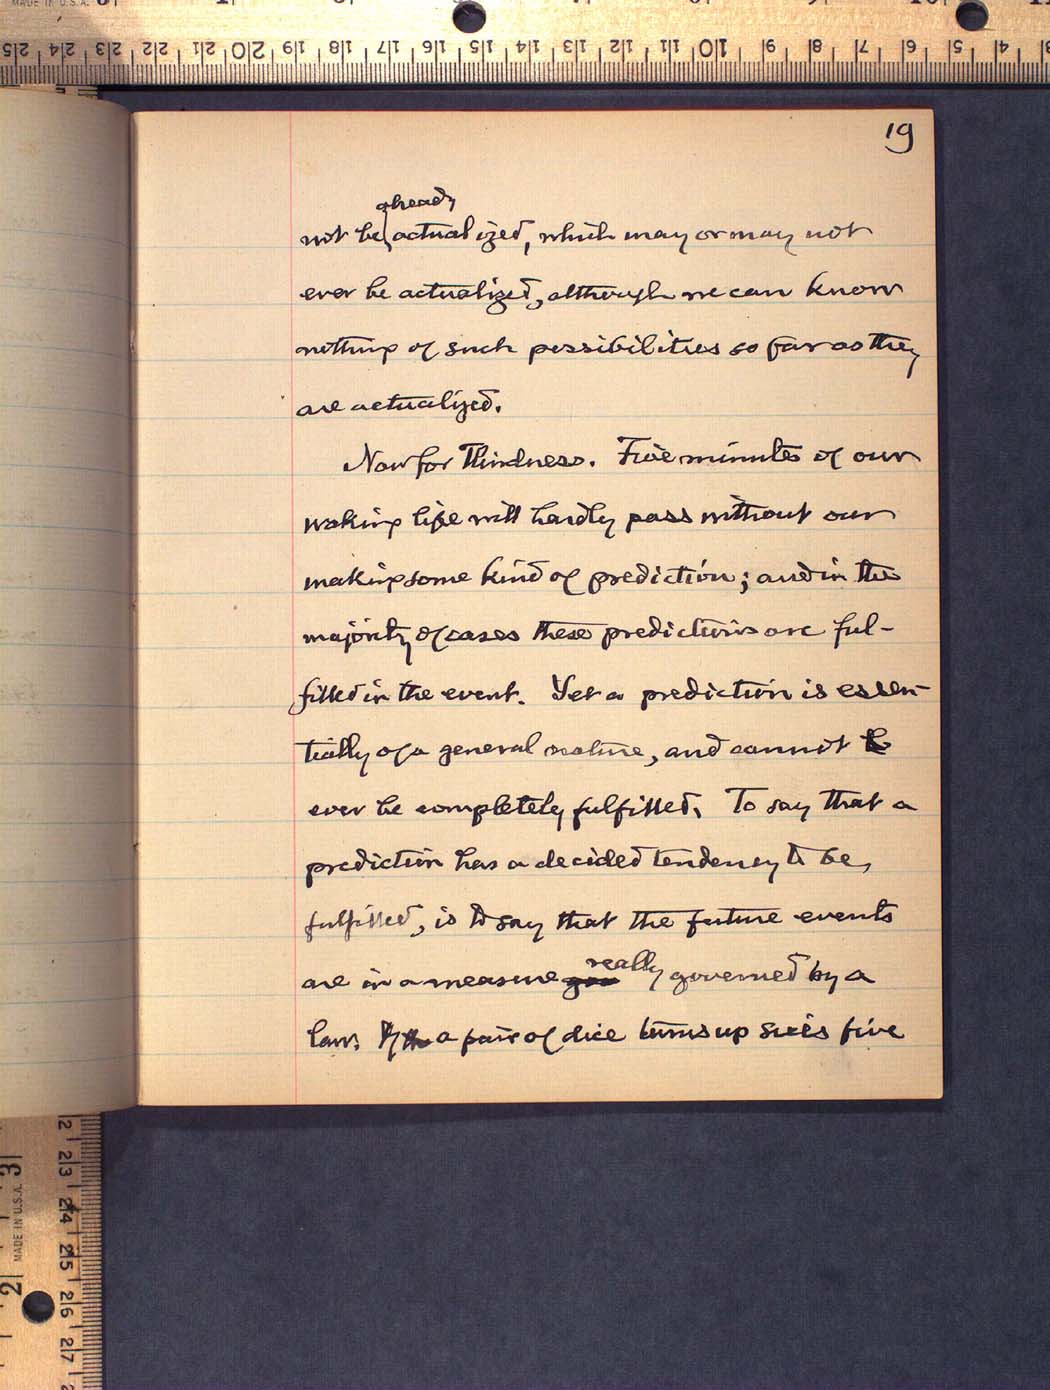 MADE IN U.S.A.
25 24 23 22 21 20 19 18 17 16 15 14 13 12 11 10 9 8 7 6 5 4 3
19
already
not be actualized, which may or may not
ever be actualized, although we can know
nothing of such possibilities so far as they
are actualized.
Now for Thirdness. Five minutes of our
waking life will hardly pass without our
making some kind of prediction; and in the
majority of cases these predictions are ful-
filled in the event. Yet a prediction is essen-
tially of a general nature, and cannot
ever be completely fulfilled. To say that a
prediction has a decided tendency to be,
fulfilled, is to say that the future events
really
are in a measure governed by a
law. If a pair of dice turns up sixes five
3
2
MADE IN U.S.A.
2 23 24 25 26 27